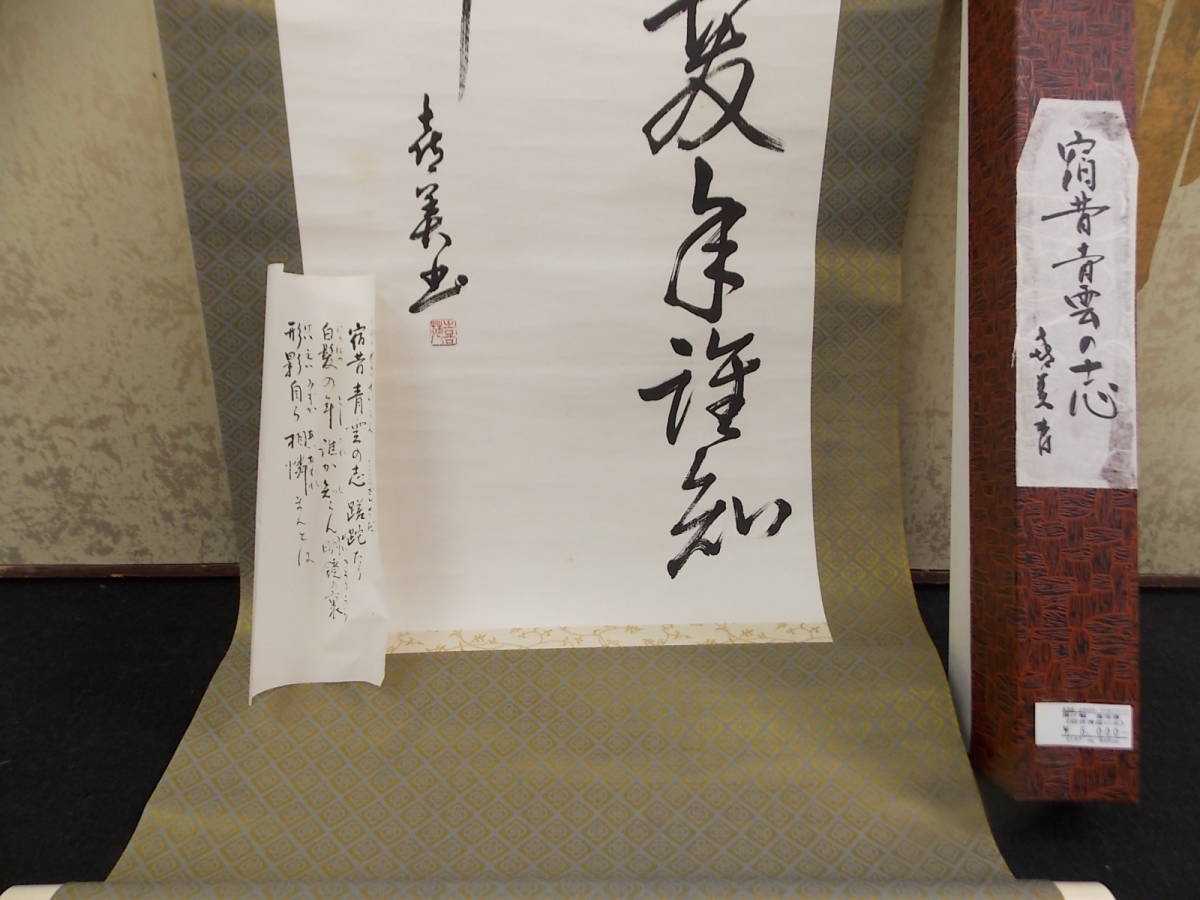 髪年誰知
喜美書
宿昔青雲の志 蹉跎たり
白髪の年 誰か知らん 明鏡の裏
形影自ら相憐まんとは
宿昔青雲の志
喜美書
¥5,000-